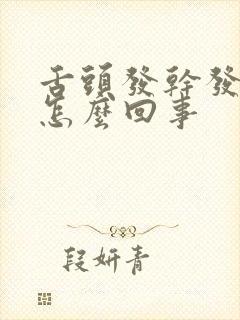 舌頭發幹發
怎麼回事
段妍青